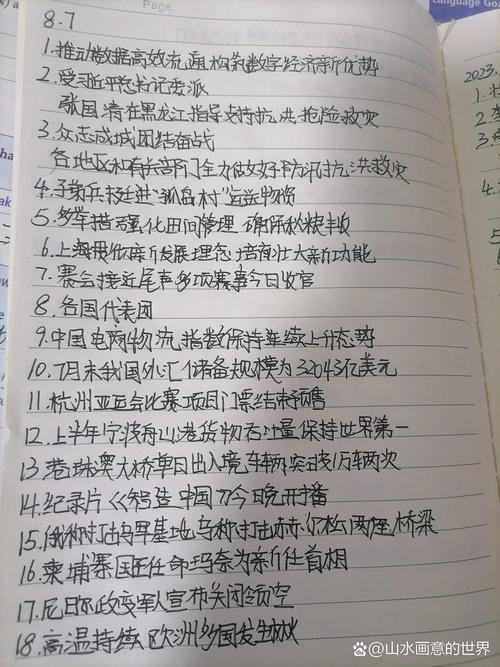 8.7
1.推动数据高效流通构筑数字经济新优势
2.受习近平总书记委派
张国清在黑龙江指导支持抗洪抢险救灾
3.众志成城团结奋战
各地区和有关部门全力做好防汛抗洪救灾
4.子弟兵挺进"孤岛村"运送物资
5.多举措强化田间管理 确保秋粮丰收
6.上海贯彻新发展理念 培育壮大新功能
7.赛会接近尾声多项赛事今日收官
8.各国代表团
9.中国电商物流指数保持连续上升态势
10.7月末我国外汇储备规模为32043亿美元
11.杭州亚运会比赛项目门票结束预售
12.上半年宁波舟山港货物吞吐量保持世界第一
13.港珠澳大桥单日出入境车辆突破1万车两次
14.纪录片《智造中国》今晚开播
15.俄称打击乌军基地 乌称打击赫尔松两座桥梁
16.柬埔寨国王任命玛奈为新任首相
17.尼日尔政变军人宣布关闭领空
18.高温持续 欧洲多国发生林火
Page.
Language Goa
2023.
头条@山水画意的世界